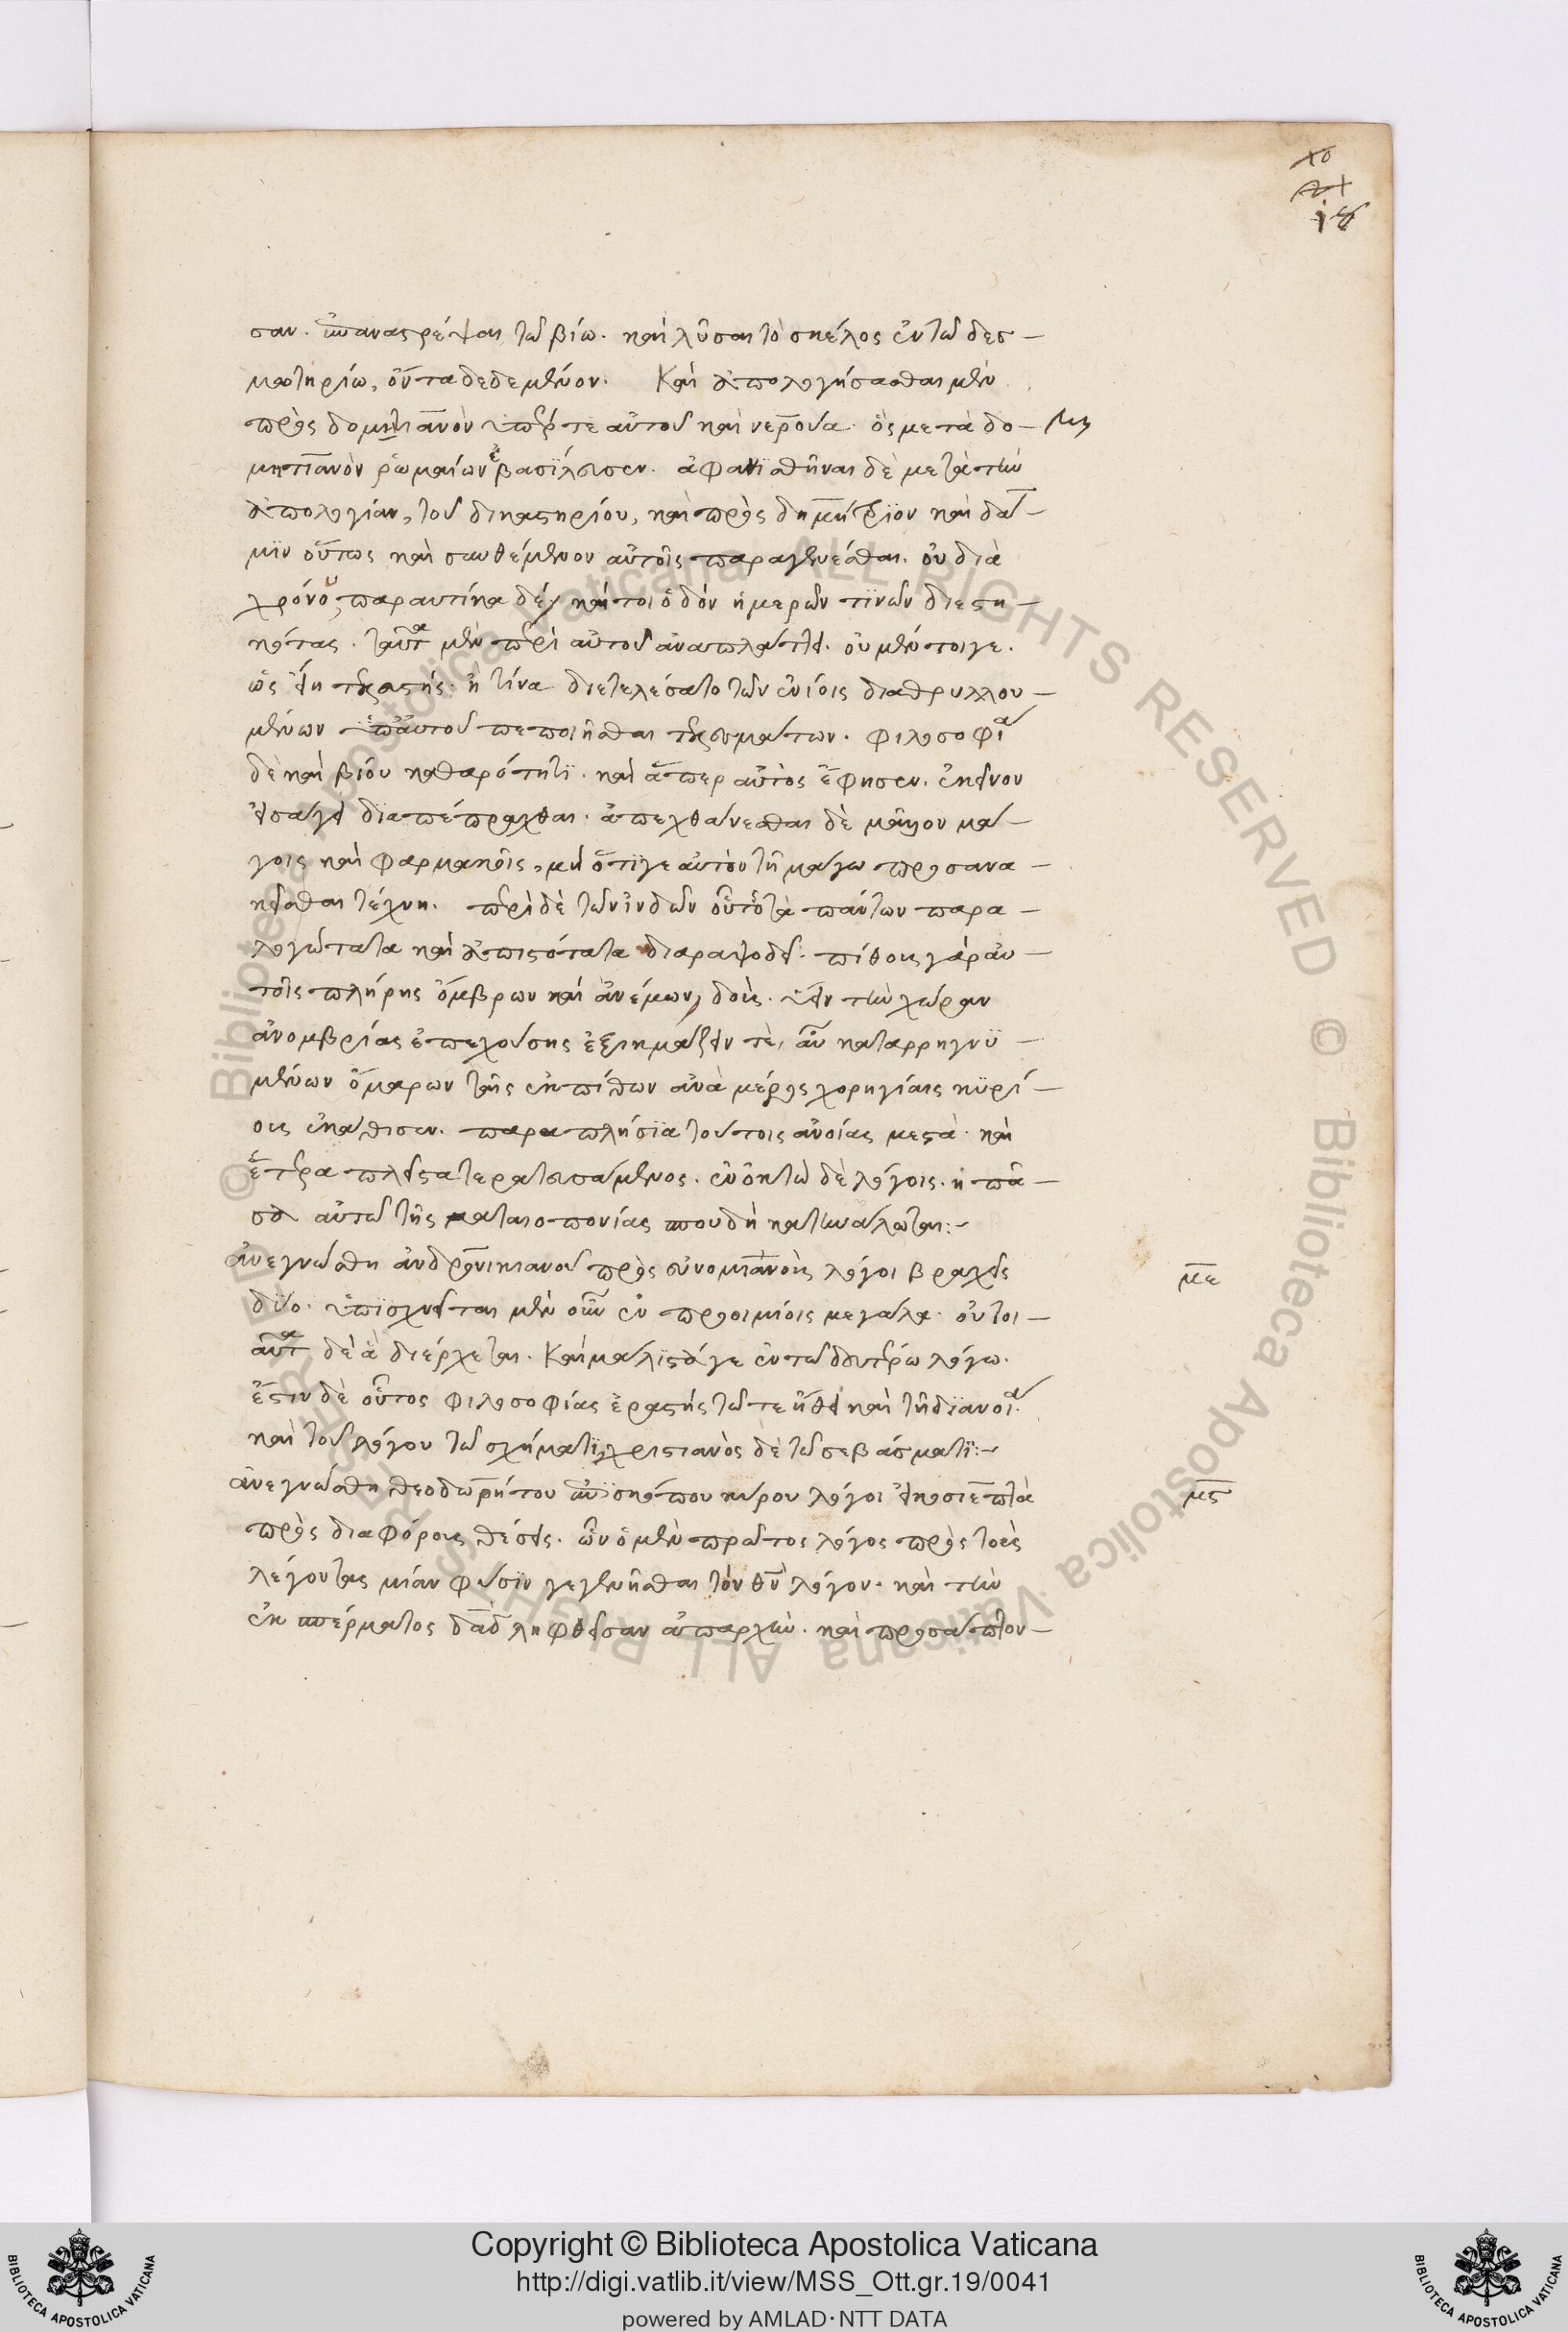 σαν. ἐπαναστρέψαι τῶ βίω. καὶ λῦσαι τὸ σκέλος ἐν τῶ δεσ-
μωτηρίω, ὄντα δεδεμένον. Καὶ ἀπολογήσασθαι μὲν
πρὸς δομητιανὸν ὑπέρ τε αὐτοῦ καὶ νερούα. ὃς μετὰ δο-
μητιανὸν ῥωμαίων ἐβασίλευσεν. ἀφανισθῆναι δὲ μετὰ τὴν
ἀπολογίαν, τοῦ δικαστηρίου, καὶ πρὸς δημήτριον καὶ δά-
μιν οὕτως καὶ συνθέμενον αὐτοῖς παραγενέσθαι. οὐ διὰ
χρόνου, παραυτίκα δέ, καίτοι ὁδόν ἡμερῶν τινῶν διεστη-
κότας. ταῦτα μὲν περὶ αὐτοῦ ἀναπλάττει. οὐ μέν τοιγε.
ὡς εἴη τελεστής. ἢ τίνα διετελέσατο τῶν ἐνίοις διαθρυλλου-
μένων ὑπ' αὐτοῦ πεποιῆσθαι τελεσμάτων. φιλοσοφία
δὲ καὶ βίου καθαρότητι. καὶ ἅπερ αὐτὸς ἔφησεν. ἐκεῖνον
εἰσάγει διαπεπρᾶχθαι. ἀπεχθάνεσθαι δὲ μᾶλλον μά-
γοις καὶ φαρμακοῖς, μὴ ὅτι γε αὐτὸν τῆ μάγω προσανα-
κεῖσθαι τέχνη. περὶ δὲ τῶν ἰνδῶν οὗτος τὰ πάντων παρα-
λογώτατα καὶ ἀπιστότατα διαραψωδεῖ. πίθους γὰρ αὐ-
τοῖς πλήρης ὄμβρων καὶ ἀνέμων, δοὺς. ὕειν τὴν χώραν
ἀνομβρίας ἐπεχούσης ἐξικμάζειν τὲ, αὖ καταρρηγνυ-
μένων ὄμβρων ταῖς ἐκ πίθων ἀνὰ μέρος χορηγίαις κυρί-
ους ἐκάθισεν. παραπλήσια τούτοις ἀνοίας μεστὰ. καὶ
ἕτερα πλεῖστα τερατευσάμενος. ἐν ὀκτὼ δὲ λόγοις. ἡ πᾶ-
σα αὐτῶ τῆς ματαιοπονίας σπουδὴ κατηνάλωται:-
ἀνεγνώσθη ἀνδρονικιανοῦ πρὸς εὐνομιανοὺς λόγοι βραχεῖς
δύο. ὑπισχνεῖται μὲν οὖν ἐν προοιμίοις μεγάλα. οὐ τοι-
αῦτα δέ ἃ διέρχεται. Καὶ μάλιστά γε ἐν τῶ δευτέρω λόγω.
ἔστιν δὲ οὗτος φιλοσοφίας ἐραστής τῶ τε ἤθει καὶ τῆ διανοία.
καὶ τοῦ λόγου τῶ σχήματι, χριστιανὸς δὲ τῶ σεβάσματι:-
με
ἀνεγνώσθη θεοδωρήτου ἐπισκόπου κύρου λόγοι εἰκοσιεπτὰ
μς
πρὸς διαφόρους θέσεις. ὧν ὁ μὲν πρῶτος λόγος πρὸς τοὺς
λέγοντας μίαν φύσιν γεγενῆσθαι τὸν θν λόγον. καὶ τὴν
ἐκ σπέρματος δαδ ληφθεῖσαν ἀπαρχὴν. καὶ προσάπτον-
Copyright © Biblioteca Apostolica Vaticana
http://digi.vatlib.it/view/MSS_Ott.gr.19/0041
powered by AMLAD·NTT DATA